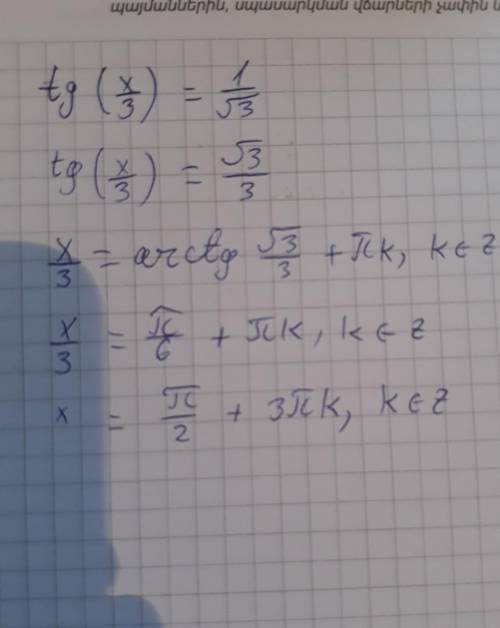 պայմաններին, սպասարկման վճարների չափին և
tg (x/3) = 1/√3
tg (x/3) = √3/3
x/3 = arctg √3/3 + πk, k ∈ z
x/3 = π/6 + πk, k ∈ z
x = π/2 + 3πk, k ∈ z